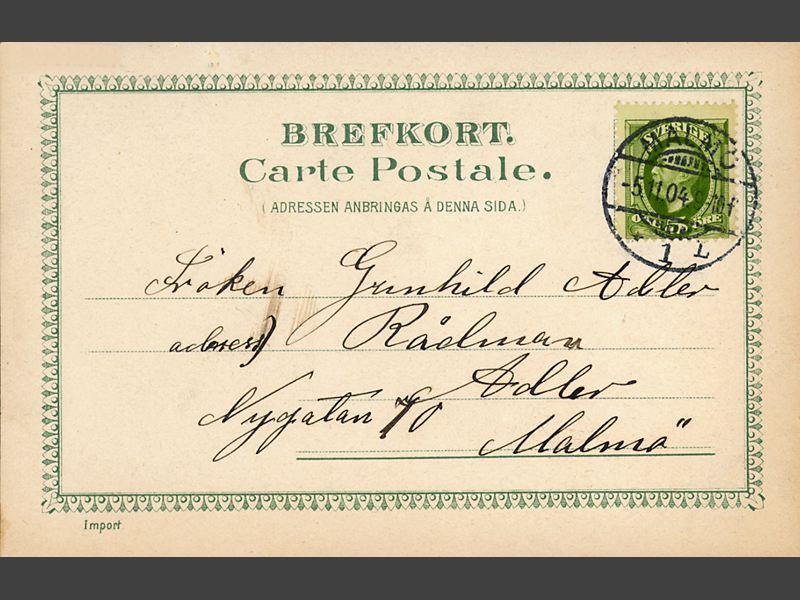 BREFKORT.
Carte Postale.
( ADRESSEN ANBRINGAS Å DENNA SIDA.)
SVERIGE
ÖRE
MALMÖ
-5.11.04
1 L
Fröken Gunhild Adler
adress) Rådman
Adler
Nygatan
Malmö"
Import